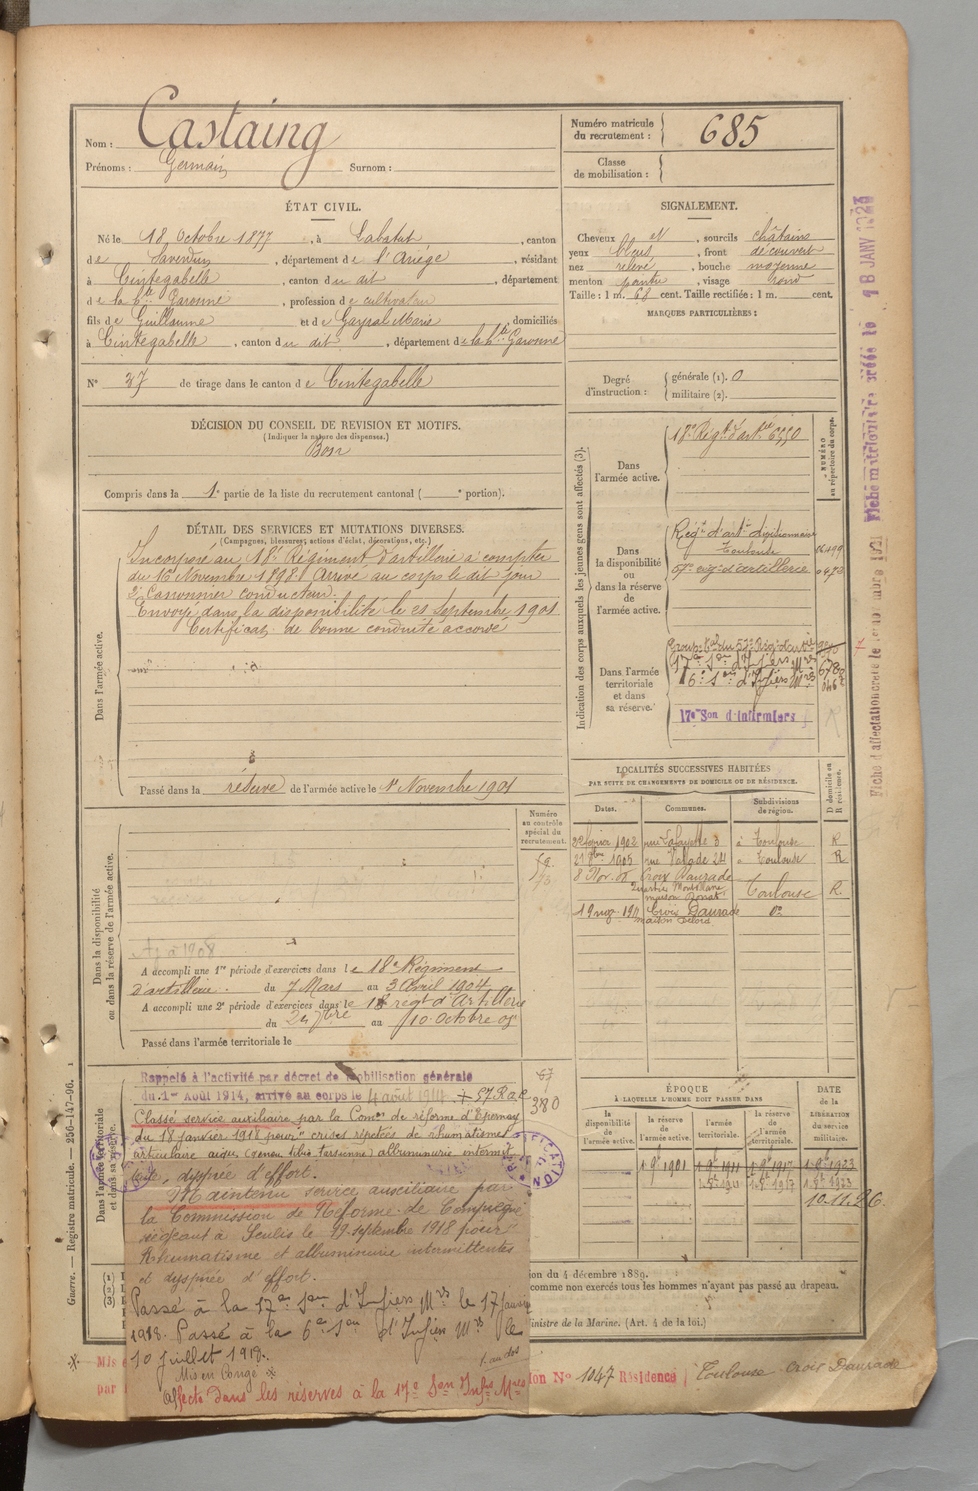 Nom : Castaing
Prénoms : Germain Surnom :
Numéro matricule du recrutement : 685
Classe de mobilisation :
ÉTAT CIVIL.
Né le 18 Octobre 1877, à Labatut, canton
de Saverdun, département de l'Ariège, résidant
à Cintegabelle, canton du dit, département
de la hte Garonne, profession de cultivateur
fils de Guillaume et de Gayral Marie, domiciliés
à Cintegabelle, canton du dit, département de la hte Garonne
N° 37 de tirage dans le canton de Cintegabelle
SIGNALEMENT.
Cheveux et, sourcils châtains
yeux bleus, front découvert
nez relevé, bouche moyenne
menton pointu, visage rond
Taille : 1 m. 68 cent. Taille rectifiée : 1 m. cent.
MARQUES PARTICULIÈRES :
Degré d'instruction : générale (1). 0
militaire (2).
DÉCISION DU CONSEIL DE REVISION ET MOTIFS.
(Indiquer la nature des dispenses.)
Bon
Compris dans la 1e partie de la liste du recrutement cantonal ( e portion).
DÉTAIL DES SERVICES ET MUTATIONS DIVERSES.
(Campagnes, blessures, actions d'éclat, décorations, etc.)
Dans l'armée active.
Incorporé au 18e Régiment d'artillerie à compter
du 16 Novembre 1898. Arrivé au corps le dit jour
2e Canonnier conducteur.
Envoyé dans la disponibilité le 21 Septembre 1901
Certificat de bonne conduite accordé
Passé dans la réserve de l'armée active le 1er Novembre 1901
Indication des corps auxquels les jeunes gens sont affectés (3).
NUMÉRO au répertoire du corps.
Dans l'armée active.
18e Régt d'artie 6550
Dans la disponibilité ou dans la réserve de l'armée active.
Régt d'artie divisionnaire
Toulouse
57e rég. d'artillerie
Dans l'armée territoriale et dans sa réserve.
17e Son d'Infiers Mres
16e Son d'Infiers Mres
17e Son d'Infirmiers
LOCALITÉS SUCCESSIVES HABITÉES
PAR SUITE DE CHANGEMENTS DE DOMICILE OU DE RÉSIDENCE.
Dates. Communes. Subdivisions de région. D domicile ou R résidence.
2 février 1902 rue Lafayette 3 à Toulouse R
rue Valade 24 à Toulouse R
8 Nov. Croix Daurade
Toulouse R.
Croix Daurade do
Dans la disponibilité ou dans la réserve de l'armée active.
Numéro au contrôle spécial du recrutement.
A accompli une 1re période d'exercices dans le 18e Régiment
d'artillerie. du 7 Mars au 3 Avril 1904
A accompli une 2e période d'exercices dans le 18 régt d'Artillerie
du 7bre au 10 Octobre
Passé dans l'armée territoriale le
Dans l'armée territoriale et dans sa réserve.
Rappelé à l'activité par décret de mobilisation générale
du 1er Août 1914, arrivé au corps le 4 août 1914 + 57 R.a.c
380
Classé service auxiliaire par la Comon de réforme d'Epernay
du 18 janvier 1918 pour " crises répétées de rhumatismes
articulaire aigu (genou tibio-tarsienne) albuminurie intermit
tente, dyspnée d'effort.
Maintenu service auxiliaire par
la Commission de Réforme de Compiègne
siégeant à Senlis le 19 septembre 1918 pour
Rhumatisme et albuminurie intermittentes
et dyspnée d'effort.
Passé à la 17e Son d'Infiers Mres le 17 janvier
1919. Passé à la 6e Son d'Infiers Mres le
10 juillet 1919.
Mis en Congé
1. au dos
Affecté dans les réserves à la 17e Son Infiers Mres
ÉPOQUE
À LAQUELLE L'HOMME DOIT PASSER DANS
la disponibilité de l'armée active.
la réserve de l'armée active.
l'armée territoriale.
la réserve de l'armée territoriale.
DATE de la LIBÉRATION du service militaire.
1.9bre 1901 1.9bre 1911 1.9bre 1917 1.9bre 1923
10.11.26.
ion du 4 décembre 1889.
comme non exercés tous les hommes n'ayant pas passé au drapeau.
inistre de la Marine. (Art. 4 de la loi.)
ion N° 1047 Résidence Toulouse Croix Daurade
Guerre. — Registre matricule. — 256-147-96.
Fiche matriculaire créée le 18 JANV 1923